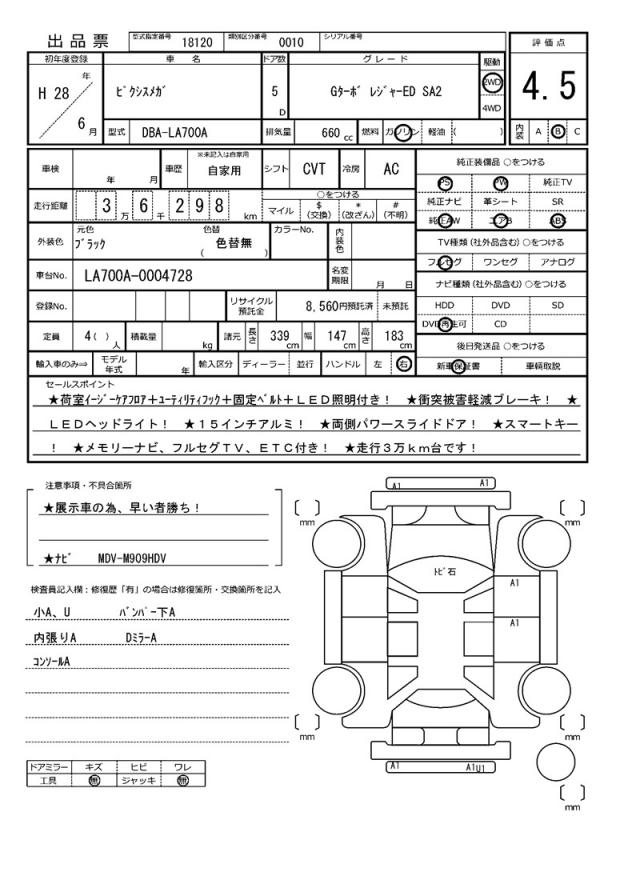 出品票 型式指定番号 18120 類別区分番号 0010 シリアル番号
評価点
4.5
内装 A B C
初年度登録 車名 ドア数 グレード 駆動
H 28 年 6 月 ピクシスメガ 5 D Gターボ レジャーED SA2 2WD 4WD
型式 DBA-LA700A 排気量 660 cc 燃料 ガソリン 軽油 ( )
車検 年 月 車歴 ※未記入は自家用 自家用 シフト CVT 冷房 AC
走行距離 3 万 6 千 2 9 8 km ○をつける
マイル $(交換) *(改ざん) #(不明)
外装色 元色 ブラック 色替 ( 色替無 ) カラーNo. 内装色
車台No. LA700A-0004728 名変期限 月 日
登録No. リサイクル預託金 8,560円預託済 未預託
定員 4( ) 人 積載量 kg 諸元 長さ 339 cm 幅 147 cm 高さ 183 cm
輸入車のみ⇒ モデル年式 年 輸入区分 ディーラー 並行 ハンドル 左 右
純正装備品 ○をつける
PS PW 純正TV
純正ナビ 革シート SR
純正AW エアB ABS
TV種類(社外品含む)○をつける
フルセグ ワンセグ アナログ
ナビ種類(社外品含む)○をつける
HDD DVD SD
DVD再生可 CD
後日発送品 ○をつける
新車保証書 車輌取説
セールスポイント
★荷室イージーケアフロア+ユーティリティフック+固定ベルト+LED照明付き! ★衝突被害軽減ブレーキ! ★
LEDヘッドライト! ★15インチアルミ! ★両側パワースライドドア! ★スマートキー
! ★メモリーナビ、フルセグTV、ETC付き! ★走行3万km台です!
注意事項・不具合箇所
★展示車の為、早い者勝ち!
★ナビ MDV-M909HDV
検査員記入欄:修復歴「有」の場合は修復箇所・交換箇所を記入
小A、U バンパー下A
内張りA DミラーA
コンソールA
ドアミラー キズ ヒビ ワレ
工具 無 ジャッキ 無
A1 A1
[ ] mm [ ] mm
トビ石
A1
A1
[ ] mm [ ] mm
A1 A1U1
[ ] mm